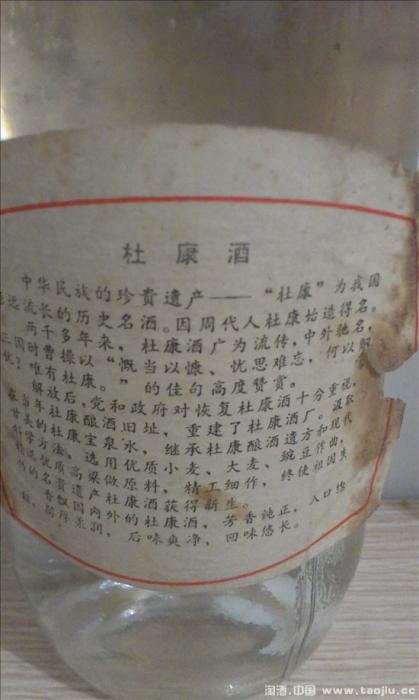 杜康酒
中华民族的珍貴遗产——“杜康”为我国
远流长的历史名酒。因周代人杜康始造得名。
两千多年来，杜康酒广为流传，中外驰名，
三国时曹操以“慨当以慷、忧思难忘，何以解
忧？唯有杜康。”的佳句高度赞赏。
解放后，党和政府对恢复杜康酒十分重视，
在当年杜康酿酒旧址，重建了杜康酒厂。汲取
甘美的杜康宝泉水，继承杜康酿酒遗方和现代
科学方法，选用优质小麦、大麦、豌豆作曲，
优质高粱做原料，精工细作，终使祖国失
传的名贵遗产杜康酒获得新生。
香飘国内外的杜康酒，芳香纯正，入口
醇厚 后味爽净，回味悠长。
淘酒.中国 www.taojiu.cc